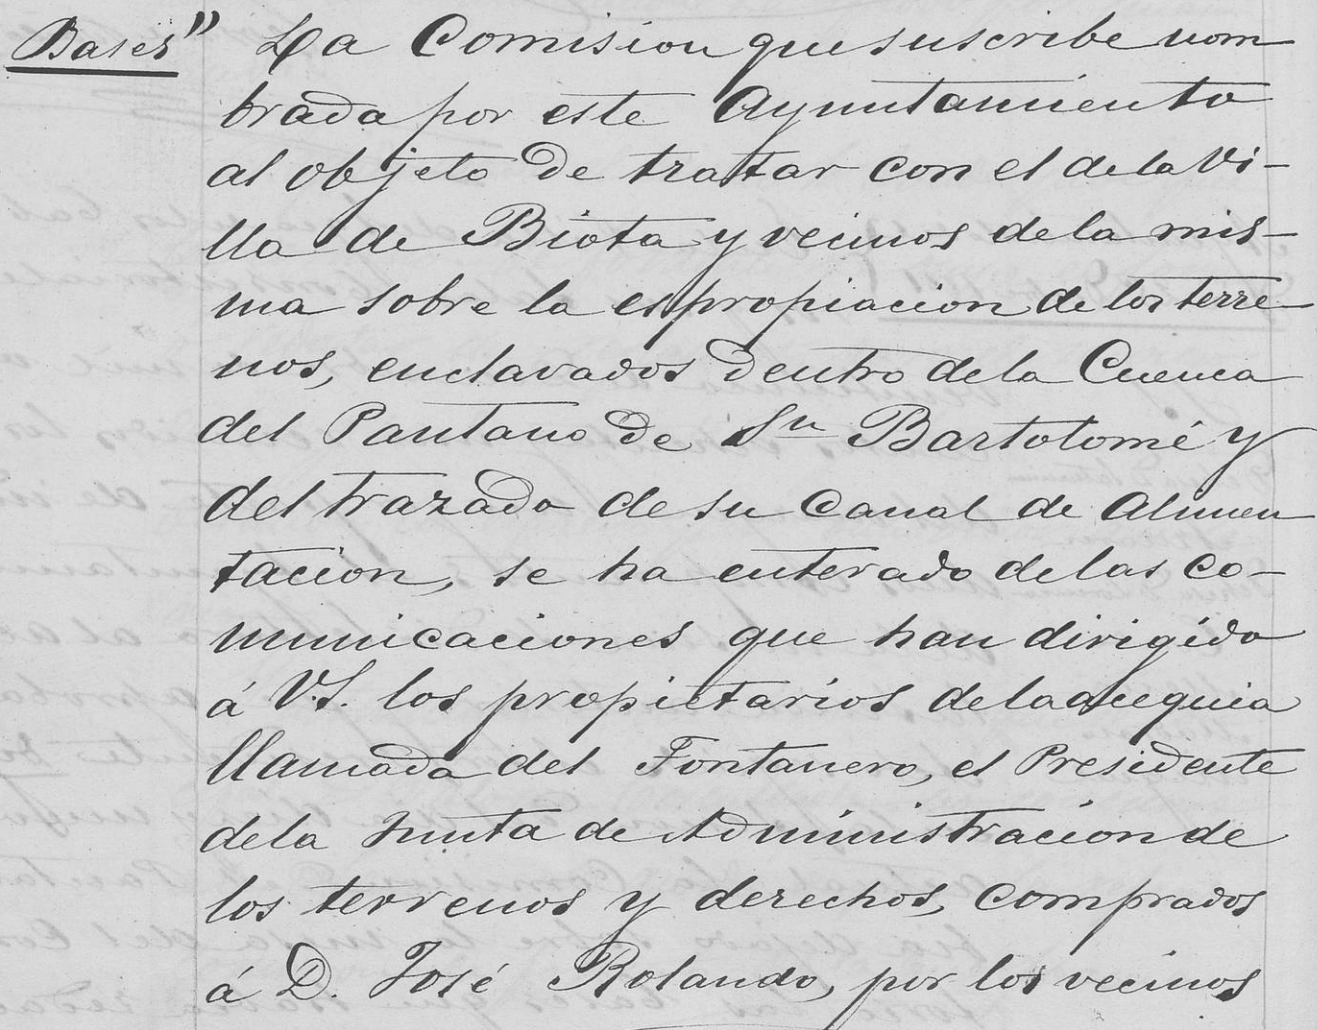 Bases" La Comision que suscribe nom
brada por este Ayuntamiento
al objeto de tratar con el de la Vi-
lla de Biota y vecinos de la mis-
ma sobre la espropiacion de los terre-
nos, enclavados dentro de la Cuenca
del Pantano de Sn Bartolomé y
del trazado de su Canal de Alimen
tacion, se ha enterado de las co-
municaciones que han dirigido
á V.S. los propietarios de la acequia
llamada del Fontanero, el Presidente
de la Junta de Administracion de
los terrenos y derechos, comprados
á D. José Rolando, por los vecinos